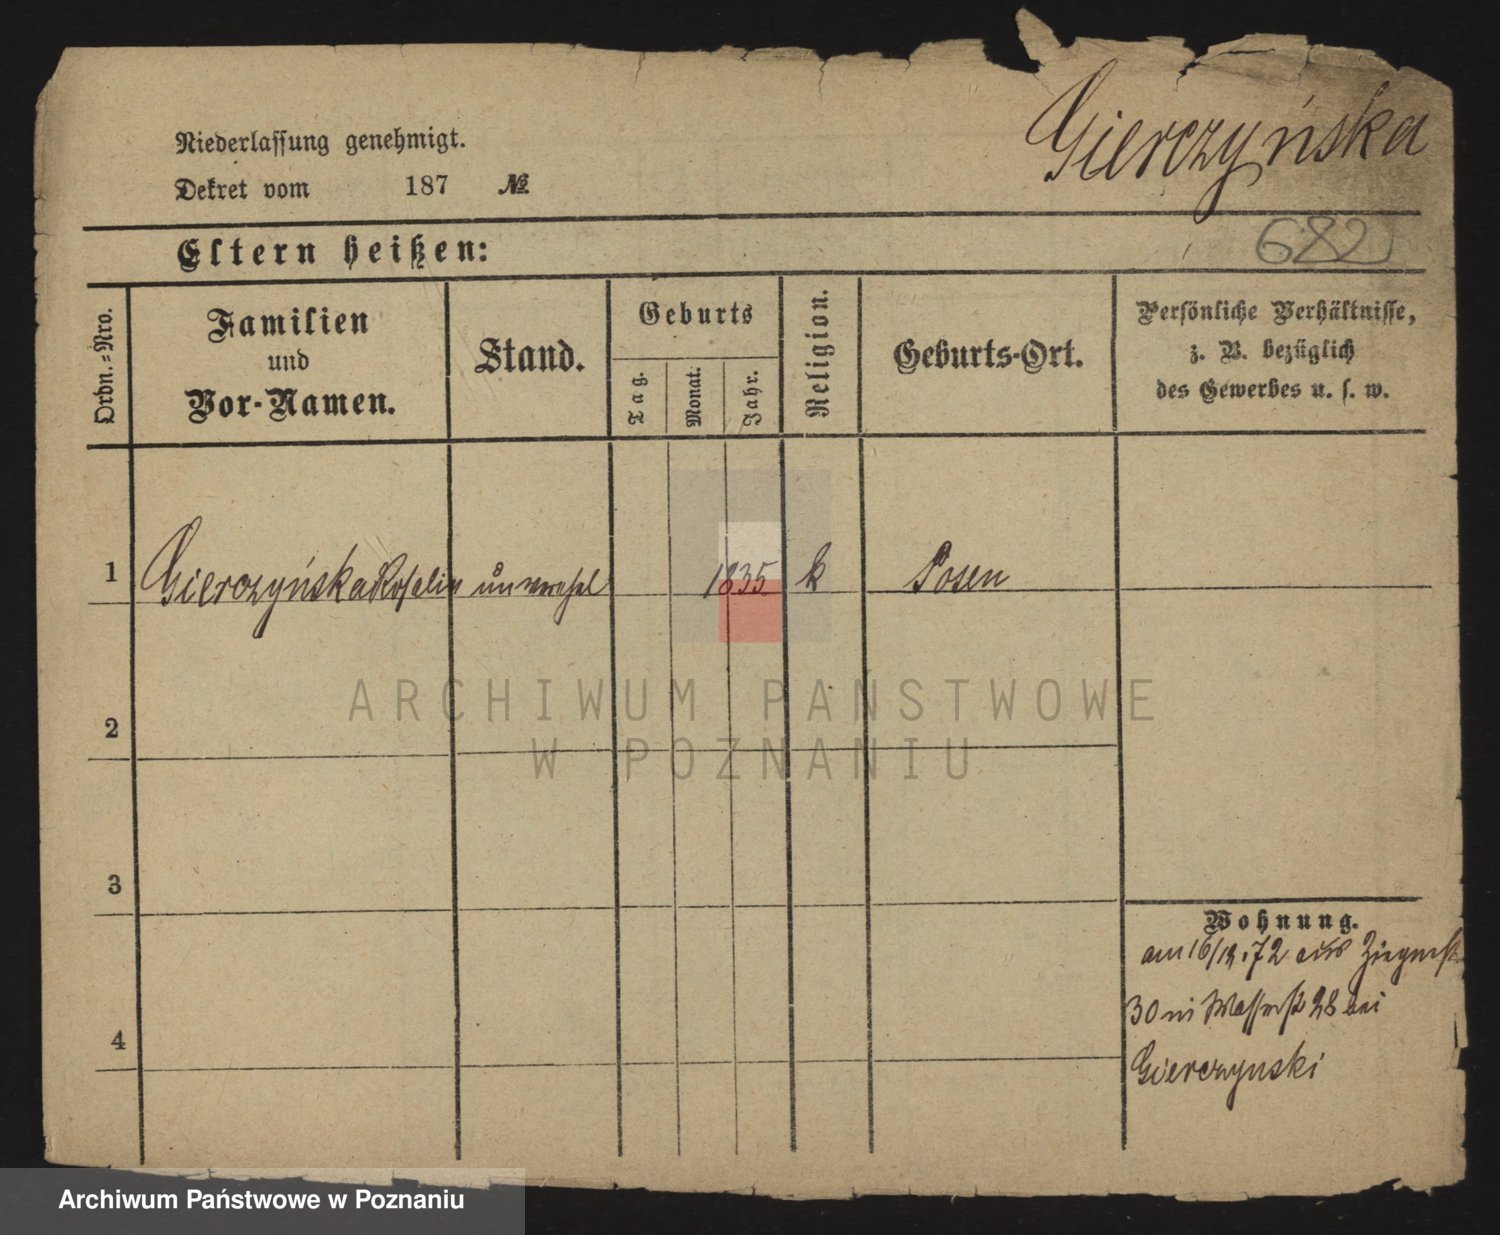 Gierczyńska
Niederlassung genehmigt.
Dekret vom 187 №
682
Eltern heißen:
Ordn.=Nro.
Familien
und
Vor-Namen.
Stand.
Geburts
Tag.
Monat.
Jahr.
Religion.
Geburts-Ort.
Persönliche Verhältnisse,
z. B. bezüglich
des Gewerbes u. s. w.
1 Gierczyńska Rosalie 1835 k Posen
ARCHIWUM PAŃSTWOWE
W POZNANIU
2
3
4
Wohnung.
am 16/12.72 aus
30 in Wasserst 28 bei
Gierczynski
Archiwum Państwowe w Poznaniu